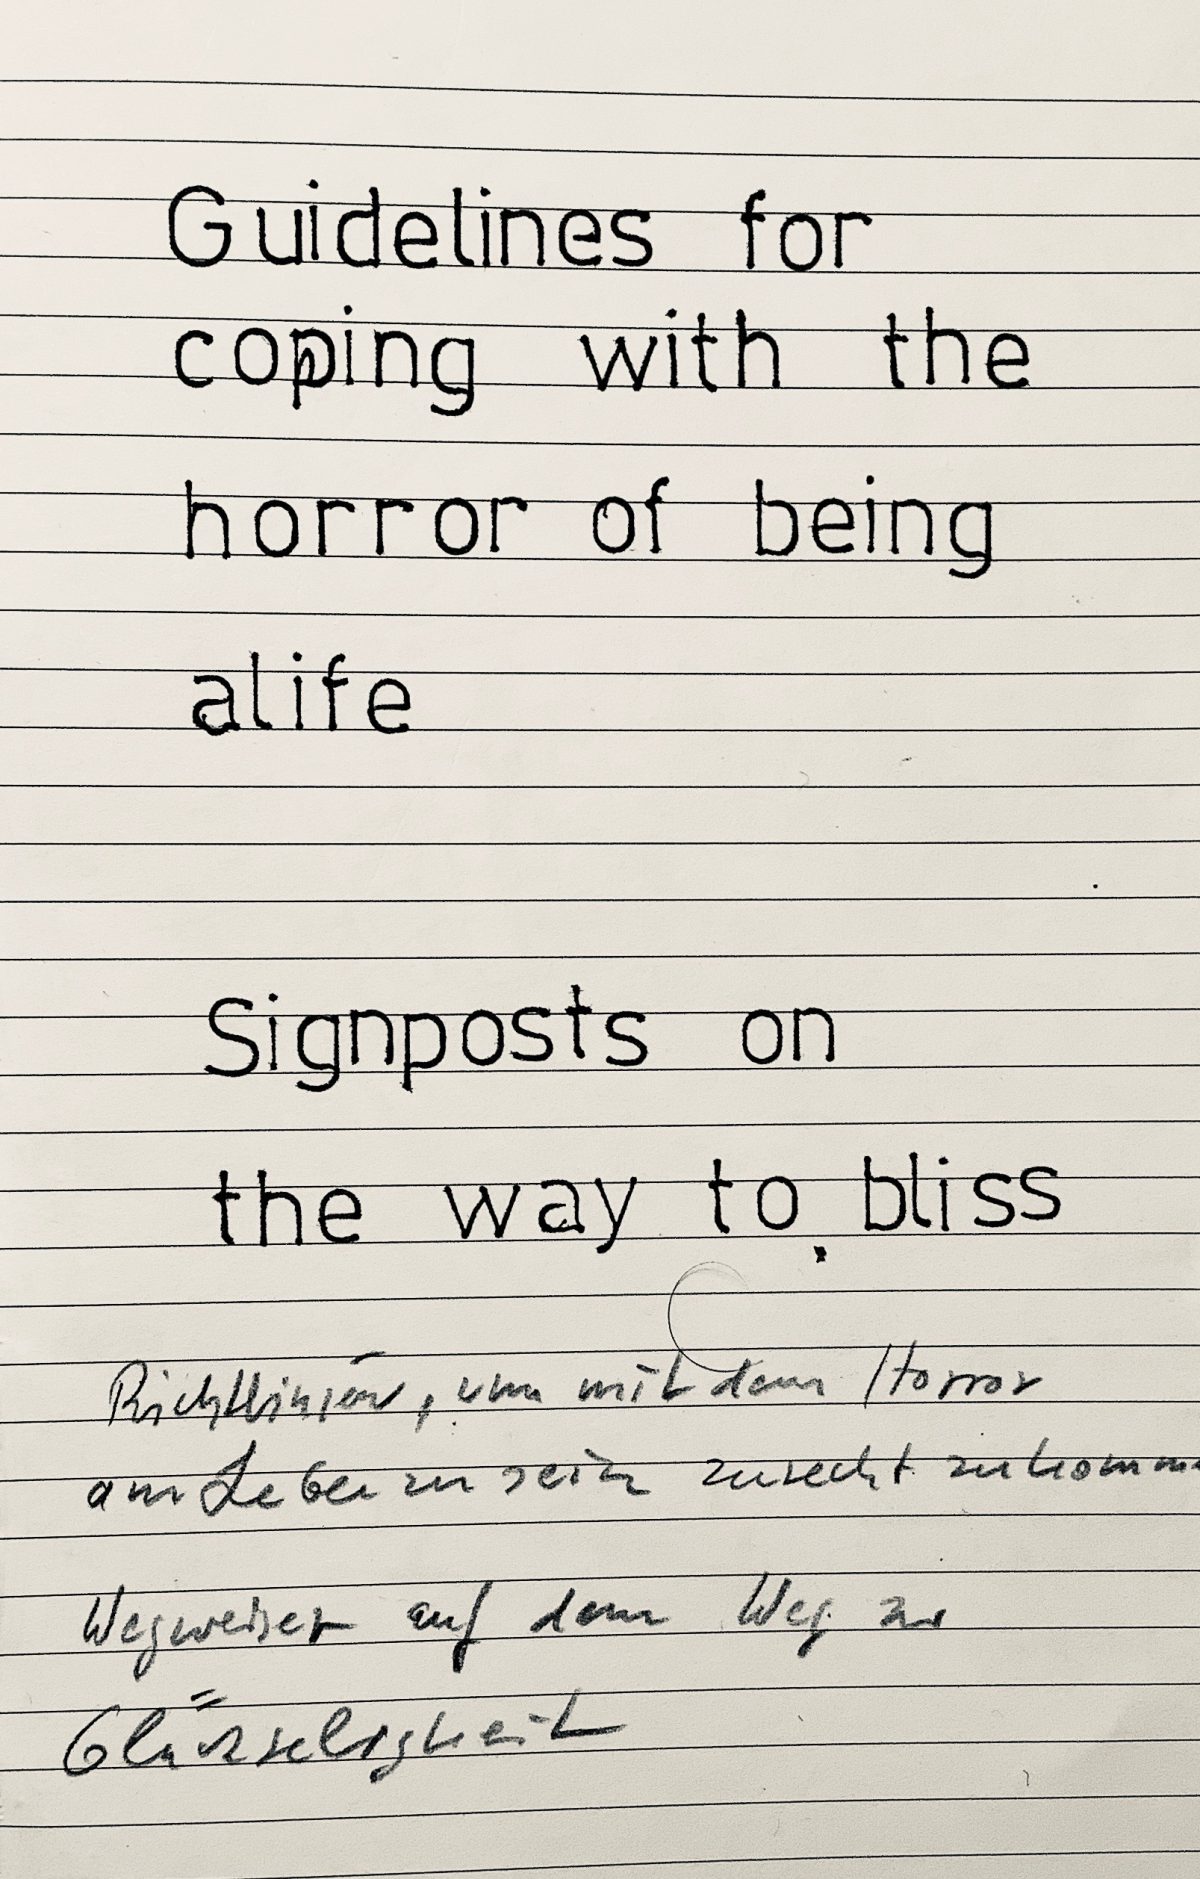 Guidelines for
coping with the
horror of being
alife
Signposts on
the way to bliss
Richtlinien, um mit dem Horror
am Leben zu sein zurecht zukomm
Wegweiser auf dem Weg zur
Glückseligkeit